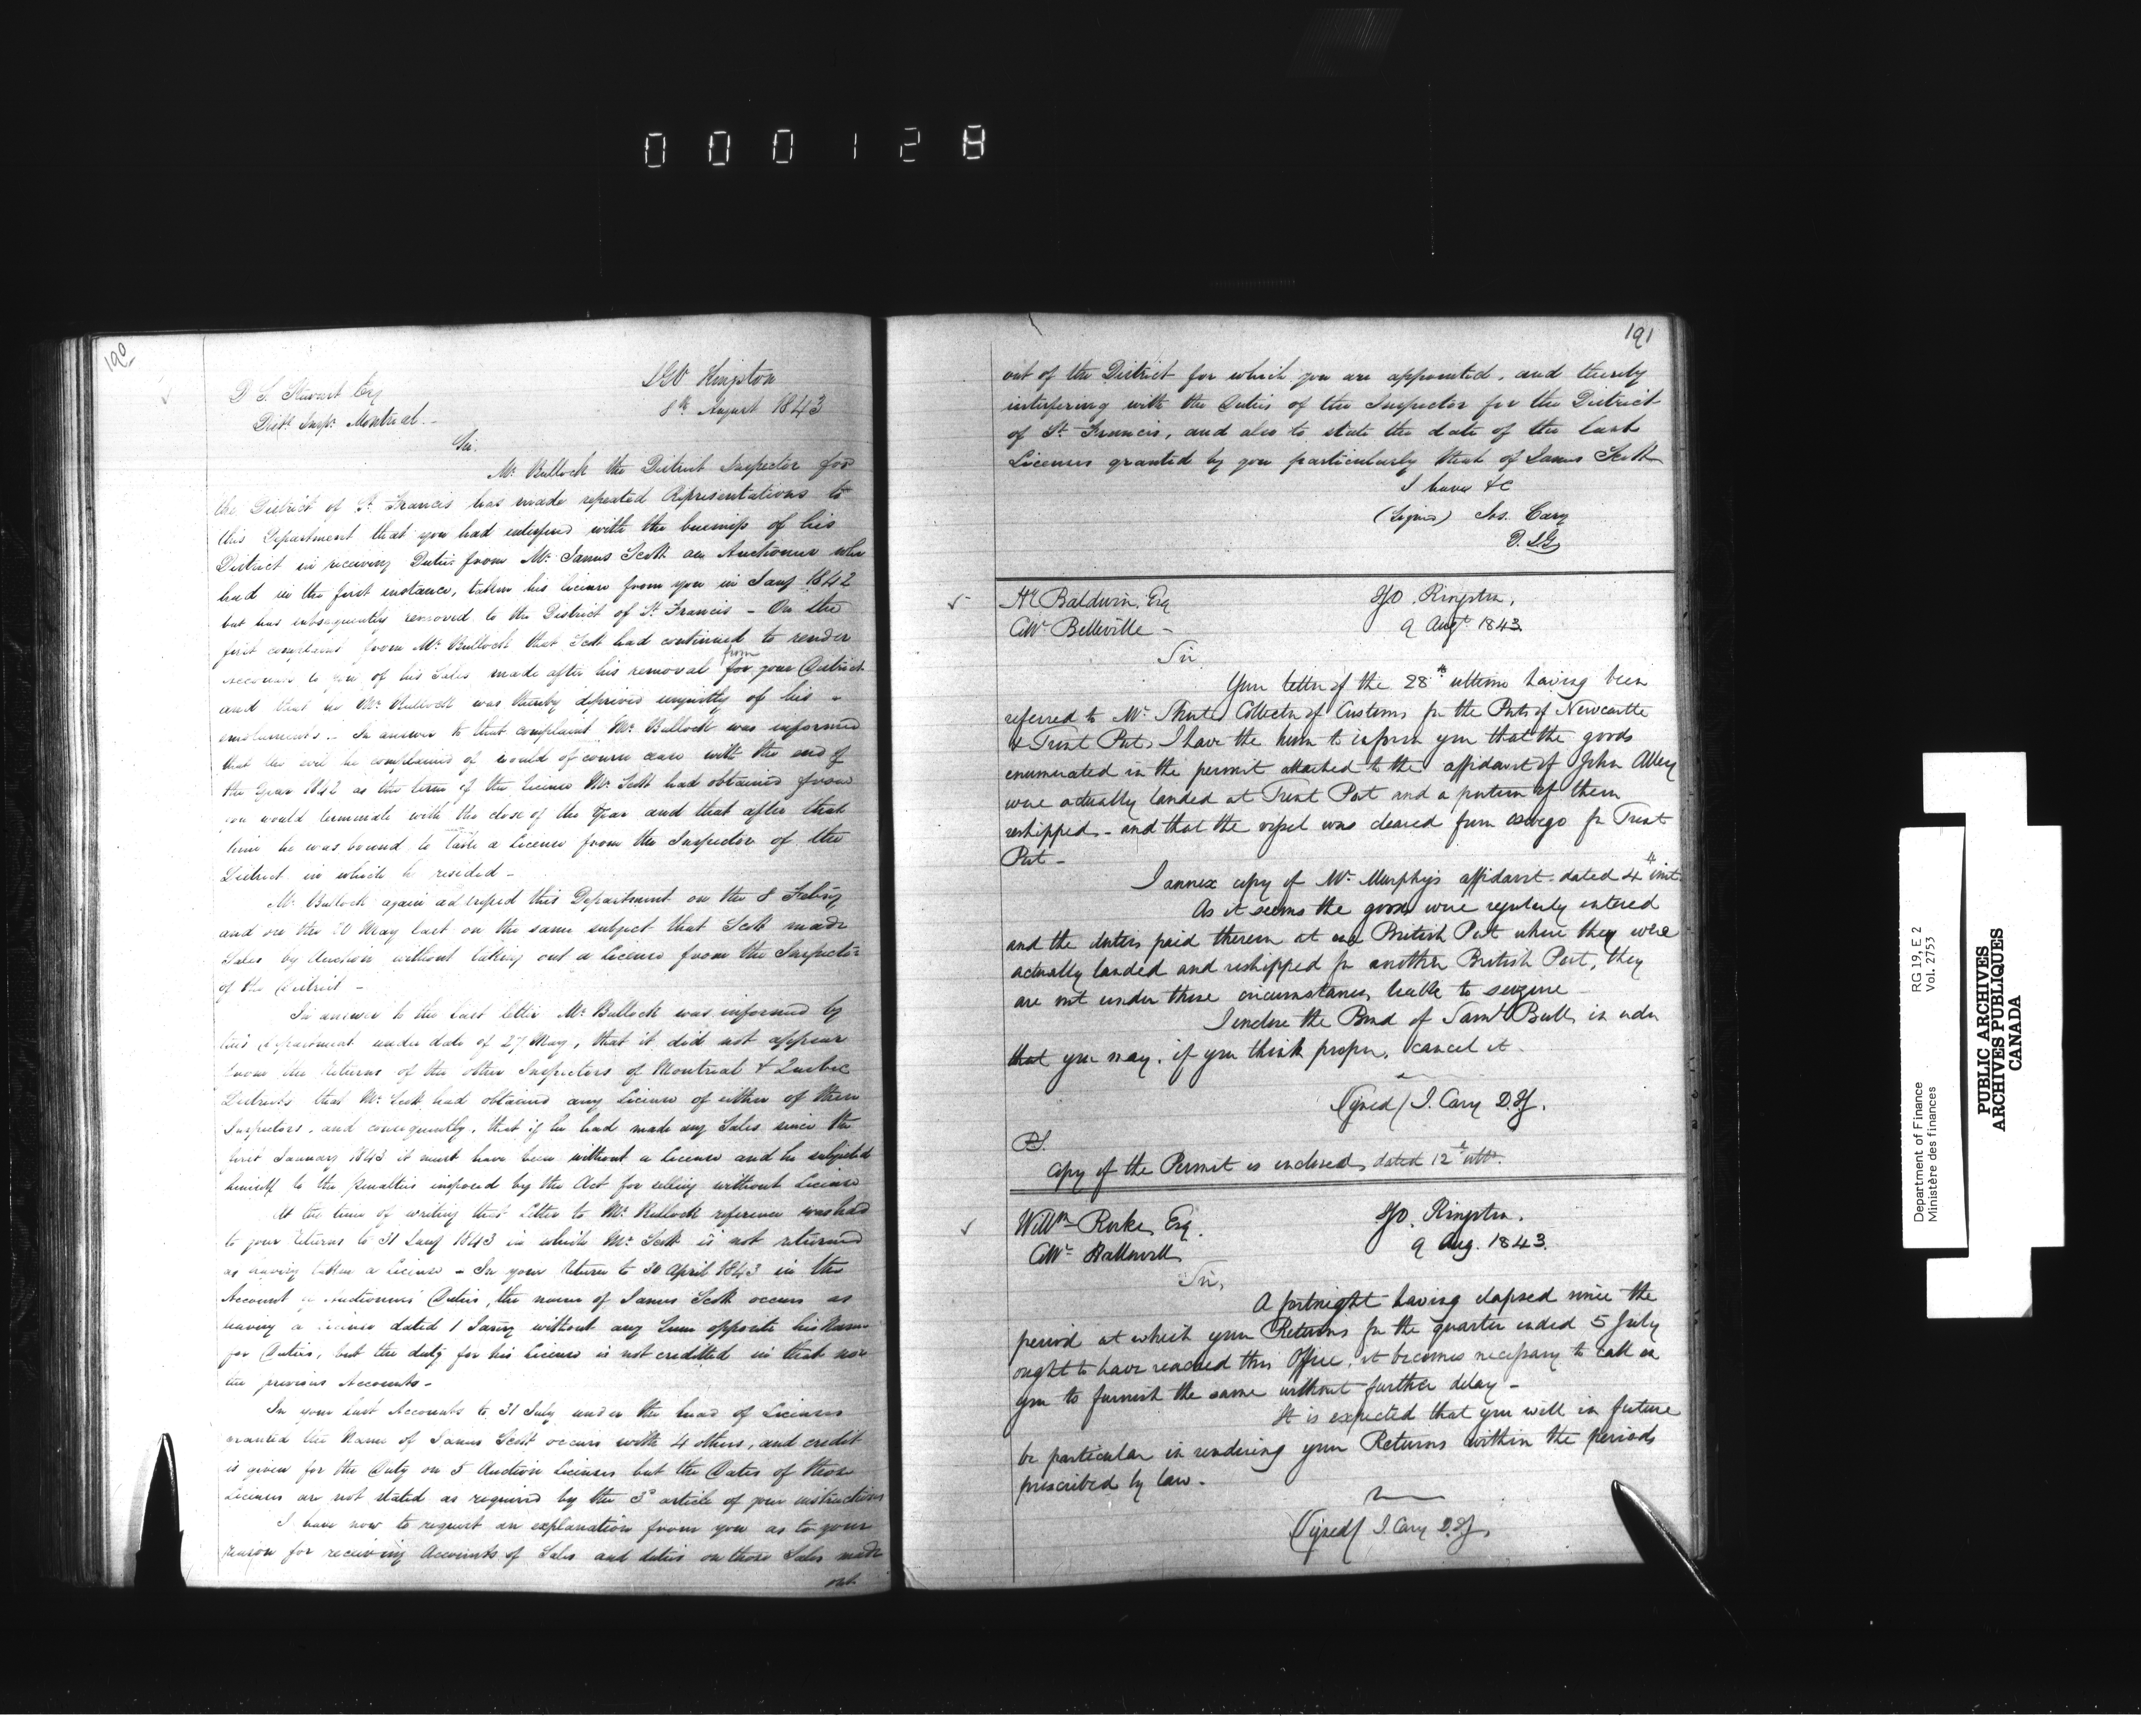 0 0 0 1 2 8
190
D S. Stewart Esq
Distt Inspr Montreal -
IGO Kingston
8th August 1843
Sir.
Mr Bullock the District Inspector for
the District of St Francis has made repeated Representations to
this Department that you had interfered with the business of his
District in receiving Duties from Mr James Scott an Auctioneer who
had in the first instance, taken his license from you in Jany 1842
but has subsequently removed to the District of St Francis - On the
first complaint from Mr Bullock that Scott had continued to render
accounts to you of his Sales made after his removal from for your District
and that he Mr Bullock was thereby deprived unjustly of his -
emoluments - In answer to that complaint Mr Bullock was informed
that the evil he complained of would of course cease with the end of
the Year 1842 as the term of the License Mr Scott had obtained from
you would terminate with the close of the Year and that after that
time he was bound to take a License from the Inspector of the
District in which he resided -
Mr Bullock again addressed this Department on the 8 Feby
and on the 20 May last on the same subject that Scott made
Sales by Auction without taking out a License from the Inspector
of the District -
In answer to the last letter Mr Bullock was informed by
this Department under date of 27 May, that it did not appear
from the returns of the other Inspectors of Montreal & Quebec
Districts that Mr Scott had obtained any License of either of these
Inspectors, and consequently, that if he had made any Sales since the
first January 1843 it must have been without a License and he subjected
himself to the penalties imposed by the Act for selling without License
At the time of writing that Letter to Mr Bullock reference was had
to your returns to 31 Jany 1843 in which Mr Scott is not returned
as having taken a License - In your return to 30 April 1843 in the
Account of Auctioneers Duties, the name of James Scott occurs as
having a License dated 1 Jany without any Sum opposite his Name
for Duties, but the duty for his License is not credited in that nor
the previous Accounts -
In your last Accounts to 31 July under the head of Licenses
granted the Name of James Scott occurs with 4 others, and credit
is given for the Duty on 5 Auction Licenses but the Dates of those
Licenses are not stated as required by the 3d article of your instructions
I have now to request an explanation from you as to your
reason for receiving Accounts of Sales and duties on those Sales made
out
191
out of the District for which you are appointed, and thereby
interfering with the Duties of the Inspector for the District
of St Francis, and also to state the date of the last
Licenses granted by you particularly that of James Scott
I have &c
(Signed) Jos. Cary
D. IG
Hy Baldwin, Esq
Collr Belleville -
IGO. Kingston,
9 Augt 1843.
Sir
Your letter of the 28th ultimo having been
referred to Mr Short Collector of Customs for the Ports of Newcastle
& Trent Port, I have the honor to inform you that the goods
enumerated in the permit attached to the affidavit of John Allen
were actually landed at Trent Port and a portion of them
reshipped - and that the vessel was cleared from Oswego for Trent
Port -
I annex copy of Mr Murphy's affidavit dated 4th inst
As it seems the goods were regularly entered
and the duties paid thereon at one British Port where they were
actually landed and reshipped for another British Port, they
are not under these circumstances, liable to seizure -
I enclose the Bond of Saml Bull, in order
that you may, if you think proper, cancel it.
(Signed) J. Cary D.IG.
P.S.
Copy of the Permit is enclosed, dated 12th ulto.
Willm Rorke, Esq.
Collr Hallowell
IGO. Kingston.
9 Aug. 1843.
Sir,
A fortnight having elapsed since the
period at which your Returns for the quarter ended 5 July
ought to have reached this Office, it becomes necessary to call on
you to furnish the same without further delay -
It is expected that you will in future
be particular in rendering your Returns within the periods
prescribed by law -
(Signed) J. Cary D.IG.
Department of Finance
Ministère des finances
RG 19, E 2
Vol. 2753
PUBLIC ARCHIVES
ARCHIVES PUBLIQUES
CANADA